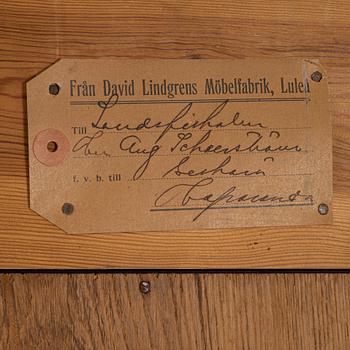 Från David Lindgrens Möbelfabrik, Luleå
Till Landsfiskalen
Herr Aug
f. v. b. till
Haparanda